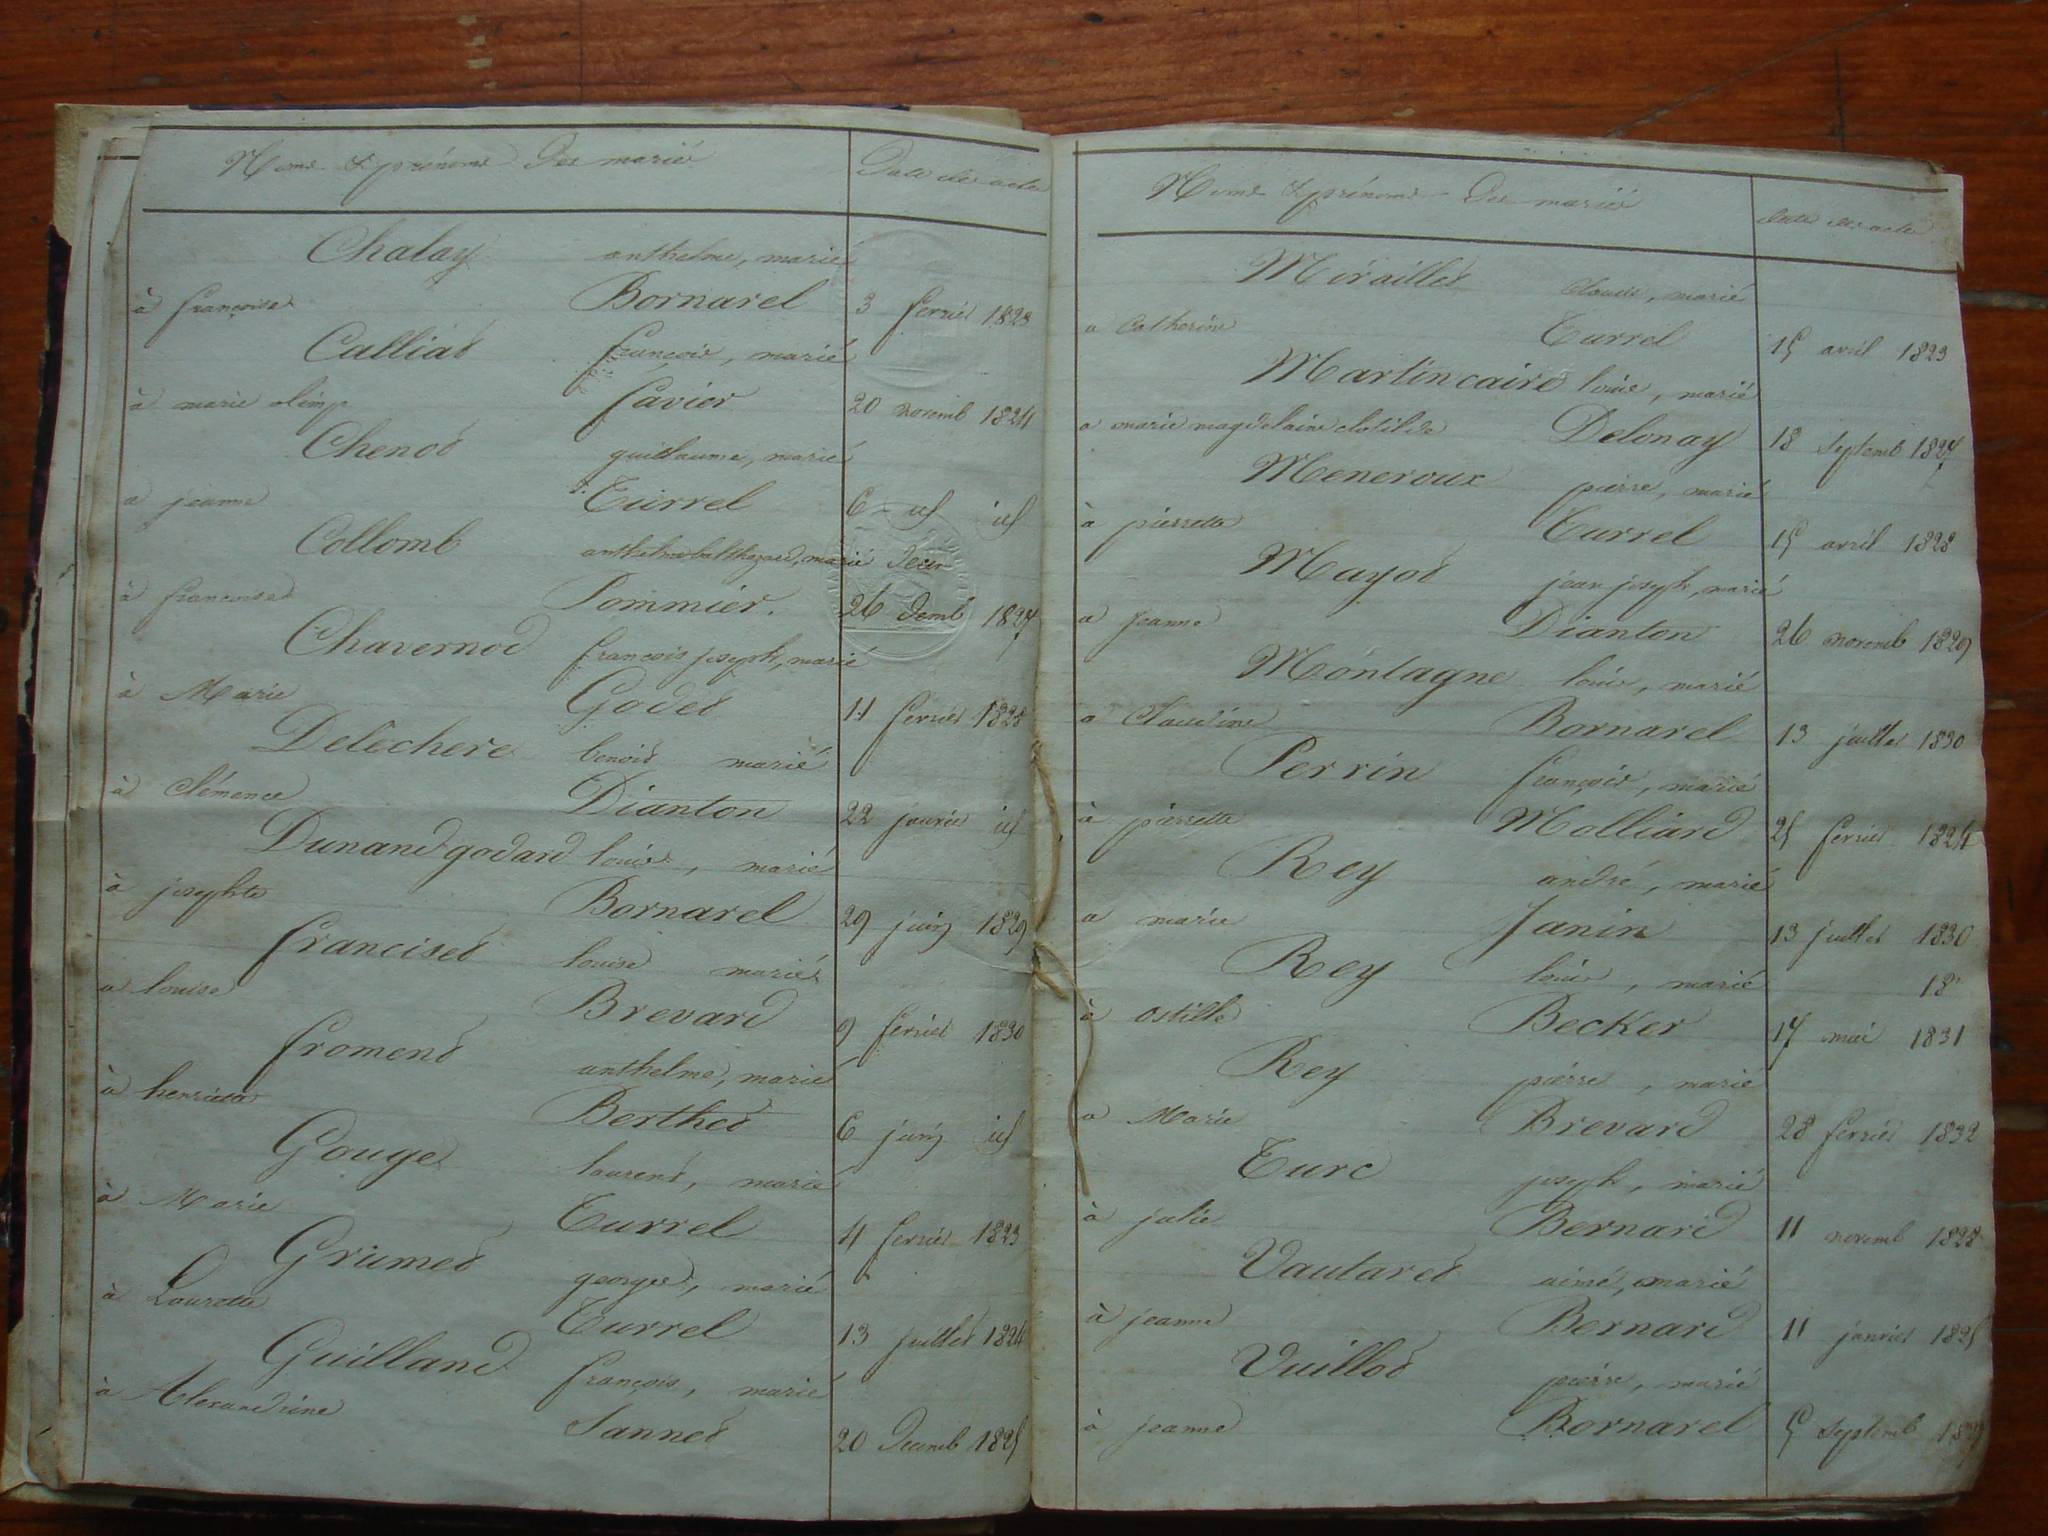 Noms & prénoms Des mariés
Date des actes
Chalay anthelme, marié
à françoise Bornarel 3 fevrier 1823
Calliat françois, marié
à marie olimp favier 20 novemb 1824
Chenot guillaume, marié
a jeanne Turrel 6 id id
Collomb anthelme balthazard, marié
à francoise Pommier. 26 Decemb 1827
Chavernod françois joseph, marié
à Marie Godet 11 fevrier 1828
Delechere benoit marié
à Clémence Dianton 22 janvier id
Dunand godard louis, marié
à josephte Bornarel 29 juin 1829
franciset louise marié
a louise Brevard 9 fevrier 1830
froment anthelme, marié
à henriette Berthet 6 juin id
Gouge laurent, marié
à Marie Turrel 4 fevrier 1823
Grumet georges, marié
à Laurette Turrel 13 juillet 1824
Guilland françois, marié
à Alexandrine Jannet 20 Decemb 1825
Noms & prénoms Des mariés
date des actes
Miraillet Claude, marié
a Catherine Turrel 15 avril 1823
Martincaire louis, marié
a marie magdelaine clotilde Delonay 18 Septemb 1827
Meneroux pierre, marié
à pierrette Turrel 15 avril 1828
Mayot jean joseph, marié
a jeanne Dianton 26 novemb 1829
Montagne louis, marié
a Claudine Bornarel 13 juillet 1830
Perrin françois, marié
à pierrette Molliard 25 fevrier 1824
Rey andré, marié
a marie Janin 13 juillet 1830
Rey louis, marié 18
à ostille Becker 17 mai 1831
Rey pierre, marié
a Marie Brevard 28 fevrier 1832
Turc joseph, marié
à julie Bernard 11 novemb 1828
Vautaret aimé, marié
à jeanne Bernard 11 janvier 1825
Vuillot pierre, marié
à jeanne Bornarel 5 Septemb